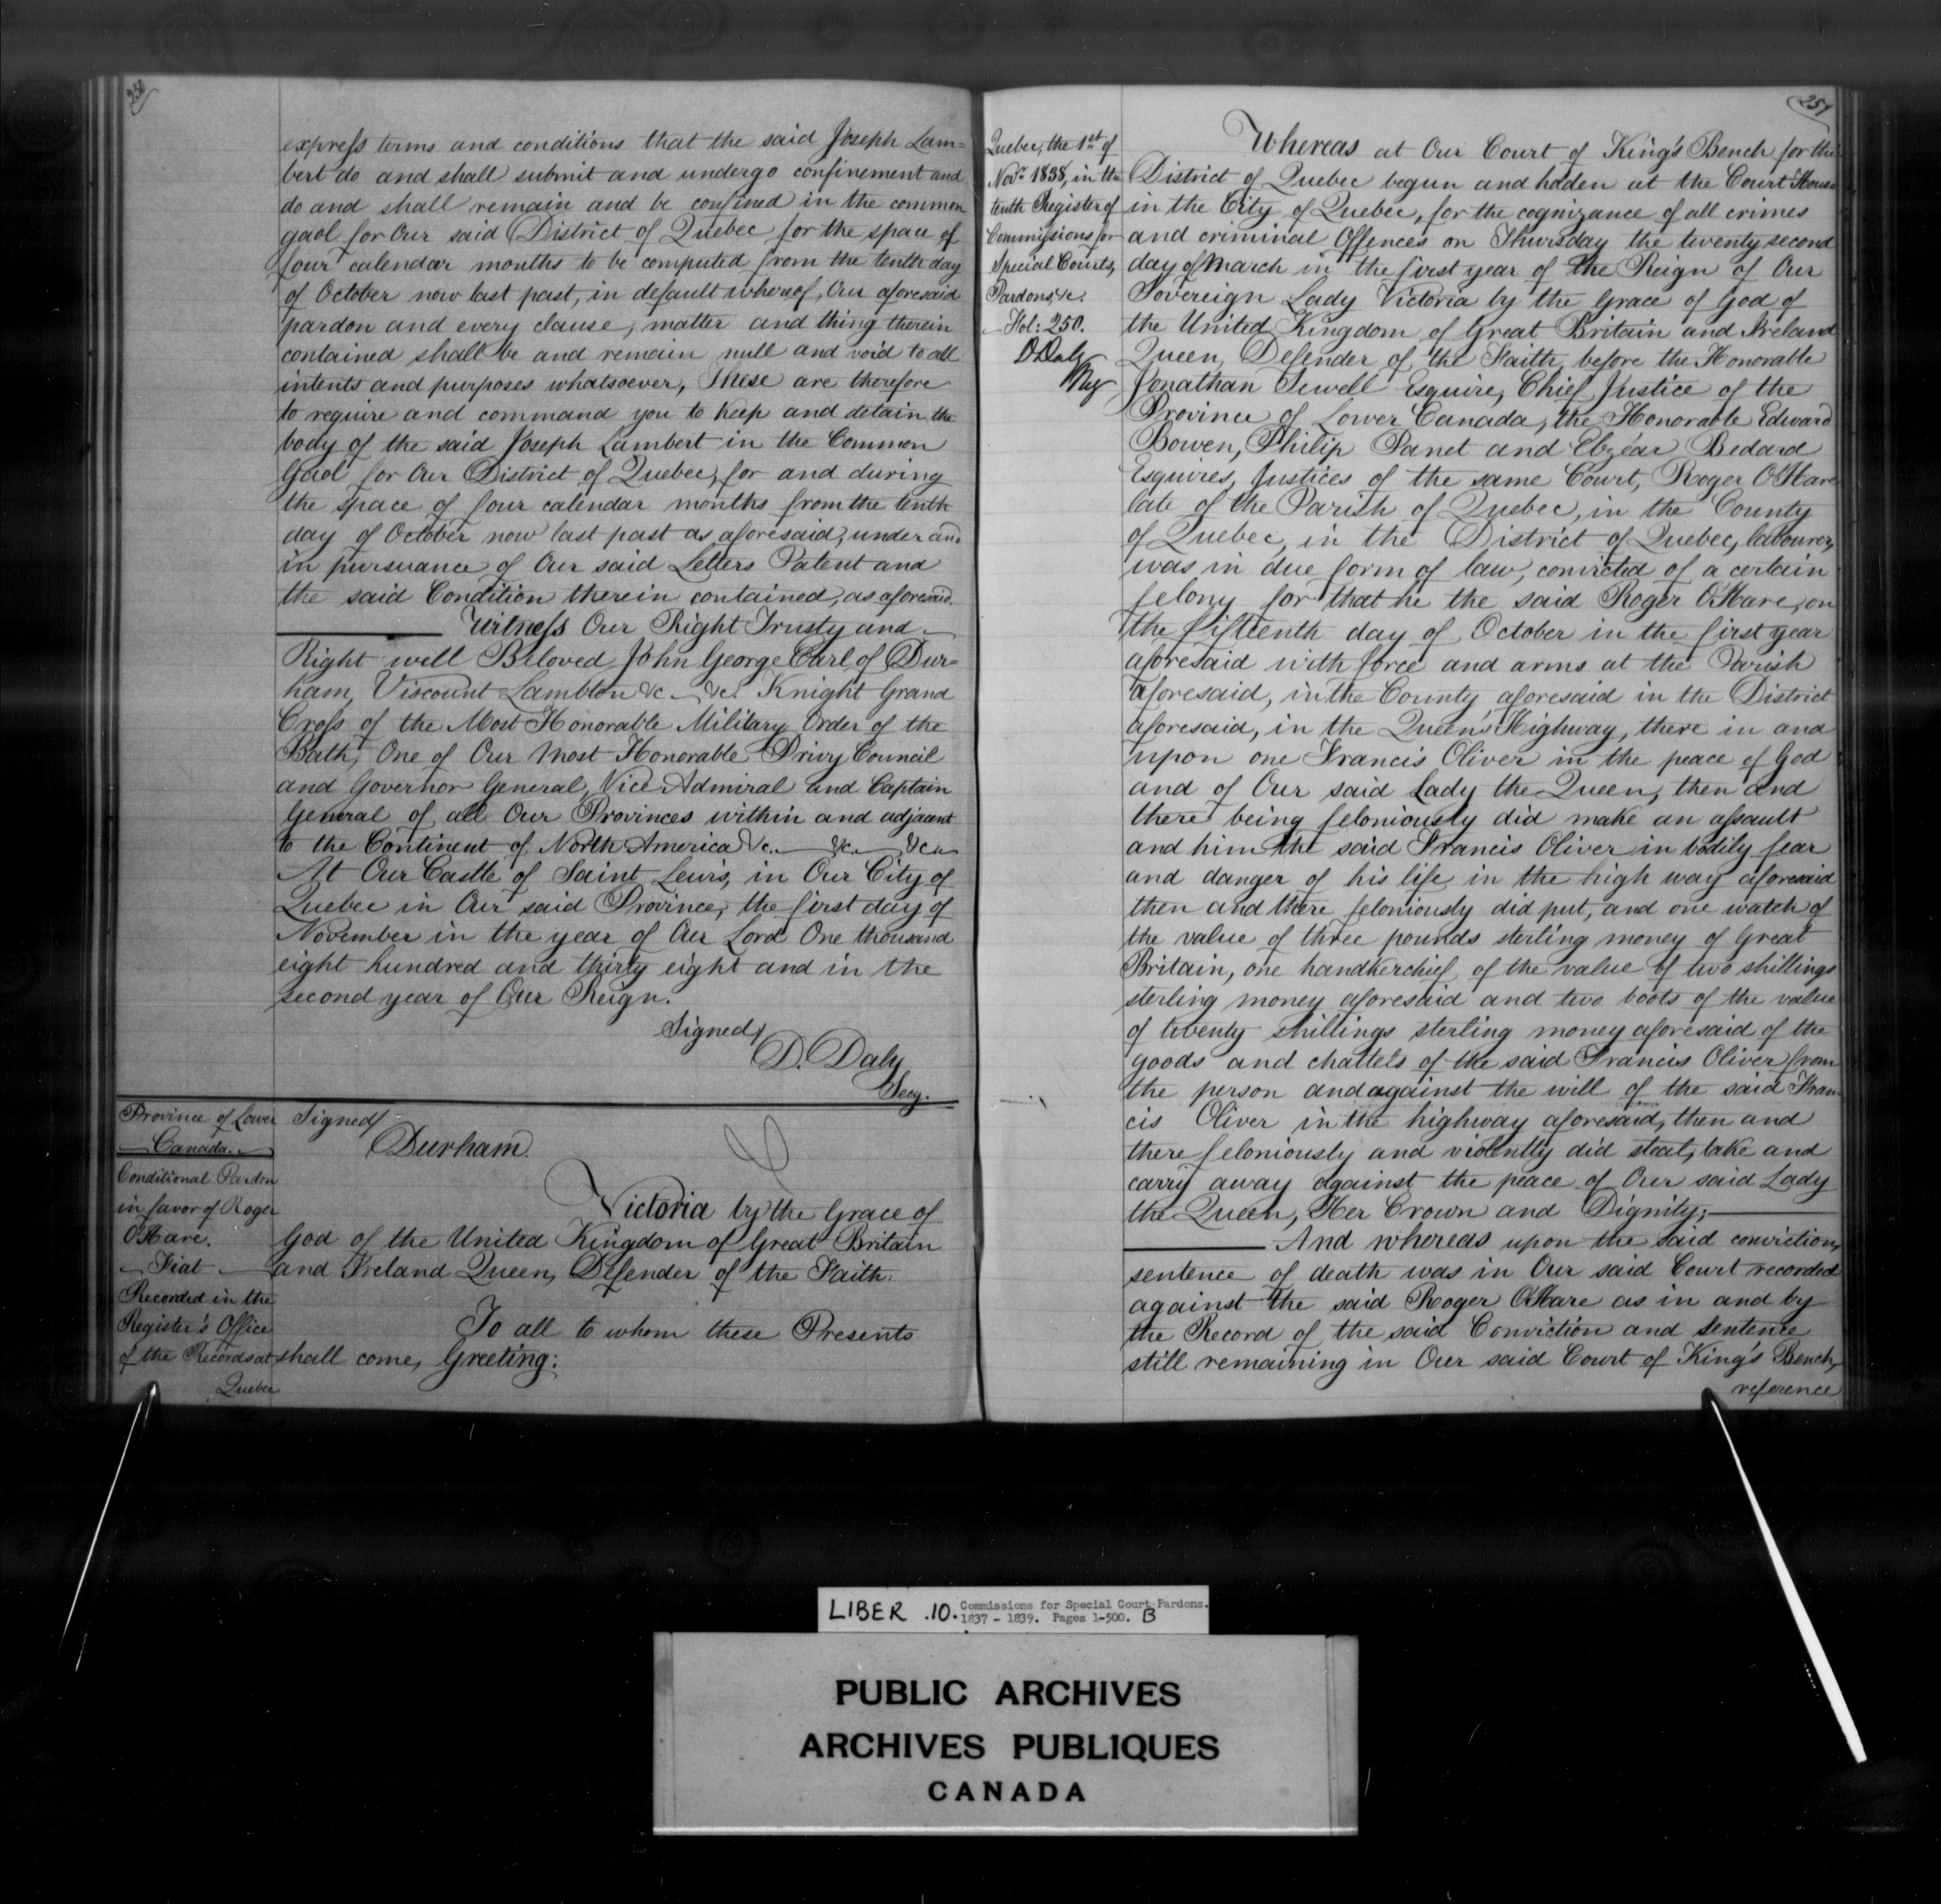 250
express terms and conditions that the said Joseph Lam=
bert do and shall submit and undergo confinement and
do and shall remain and be confined in the common
gaol for Our said District of Quebec for the space of
four calendar months to be computed from the tenth day
of October now last past, in default whereof, Our aforesaid
pardon and every clause, matter and thing therein
contained shall be and remain null and void to all
intents and purposes whatsoever, These are therefore
to require and command you to keep and detain the
body of the said Joseph Lambert in the Common
Gaol for Our District of Quebec, for and during
the space of four calendar months from the tenth
day of October now last past as aforesaid, under and
in pursuance of Our said Letters Patent and
the said Condition therein contained, as aforesaid.
Witness Our Right Trusty and
Right well Beloved John George Earl of Dur=
ham, Viscount Lambton &c. &c. Knight Grand
Cross of the Most Honorable Military Order of the
Bath, One of Our Most Honorable Privy Council
and Governor General, Vice Admiral and Captain
General of all Our Provinces within and adjacent
to the Continent of North America &c. &c. &c.
At Our Castle of Saint Lewis, in Our City of
Quebec in Our said Province, the first day of
November in the year of Our Lord One thousand
eight hundred and thirty eight and in the
second year of Our Reign.
Signed/
D. Daly
Secy.
Province of Lower
Canada.
Conditional Pardon
in favor of Roger
O'Hare.
Fiat
Recorded in the
Register's Office
of the Records at
Quebec
Signed/
Durham
Victoria by the Grace of
God of the United Kingdom of Great Britain
and Ireland Queen, Defender of the Faith.
To all to whom these Presents
shall come, Greeting:
251
Quebec, the 1st of
Novr. 1838, in the
tenth Register of
Commissions for
Special Courts,
Pardons, &c.
Fol: 250.
D. Daly
Rey
Whereas at Our Court of King's Bench for the
District of Quebec begun and holden at the Court House
in the City of Quebec, for the cognizance of all crimes
and criminal Offences on Thursday the twenty second
day of March in the first year of the Reign of Our
Sovereign Lady Victoria by the Grace of God of
the United Kingdom of Great Britain and Ireland
Queen, Defender of the Faith, before the Honorable
Jonathan Sewell Esquire, Chief Justice of the
Province of Lower Canada, the Honorable Edward
Bowen, Philip Panet and Elzéar Bedard
Esquires, Justices of the same Court, Roger O'Hare
late of the Parish of Quebec, in the County
of Quebec, in the District of Quebec, labourer,
was in due form of law, convicted of a certain
felony for that he the said Roger O'Hare, on
the fifteenth day of October in the first year
aforesaid with force and arms at the Parish
aforesaid, in the County aforesaid in the District
aforesaid, in the Queen's Highway, there in and
upon one Francis Oliver in the peace of God
and of Our said Lady the Queen, then and
there being feloniously did make an assault
and him the said Francis Oliver in bodily fear
and danger of his life in the high way aforesaid
then and there feloniously did put, and one watch of
the value of three pounds sterling money of Great
Britain, one handkerchief, of the value of two shillings
sterling money aforesaid and two boots of the value
of twenty shillings sterling money aforesaid of the
goods and chattels of the said Francis Oliver from
the person and against the will of the said Fran-
cis Oliver in the highway aforesaid, then and
there feloniously and violently did steal, take and
carry away against the peace of Our said Lady
the Queen, Her Crown and Dignity;
And whereas upon the said conviction,
sentence of death was in Our said Court recorded
against the said Roger O'Hare as in and by
the Record of the said Conviction and sentence
still remaining in Our said Court of King's Bench,
reference
LIBER .10. Commissions for Special Court-Pardons.
1837 - 1839. Pages 1-500. B
PUBLIC ARCHIVES
ARCHIVES PUBLIQUES
CANADA